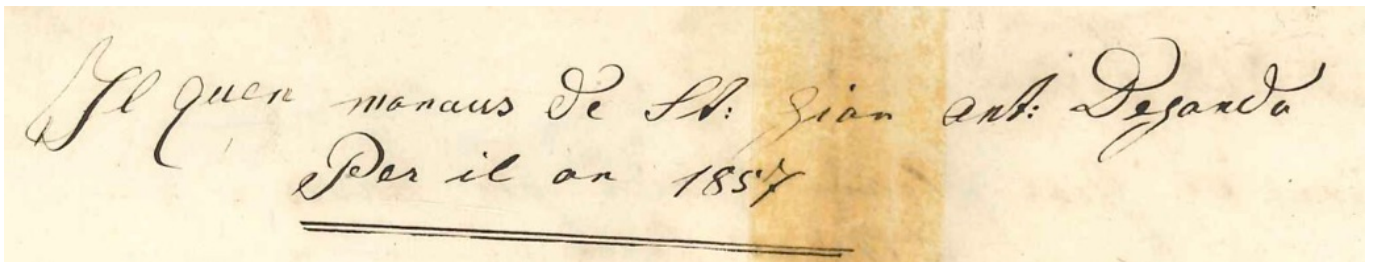 Il quen manaus de St: Gian Ant: Deganda
Per il on 1857